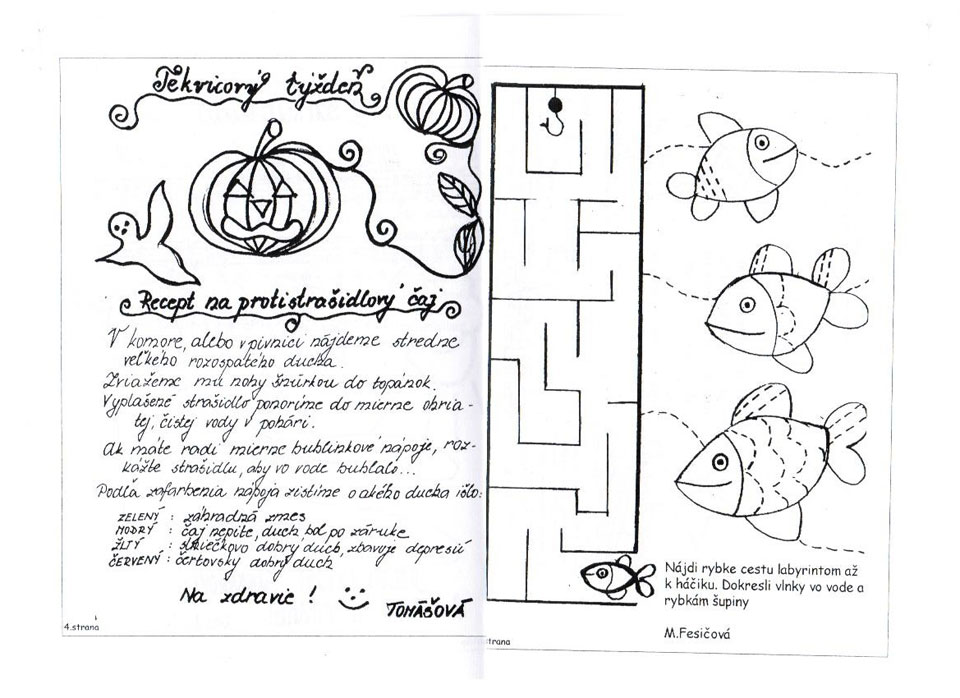 Tekvicový týždeň
Recept na protistrašidlový čaj
V komore, alebo v pivnici nájdeme stredne
veľkého rozospatého ducha.
Zviažeme mu nohy šnúrkou do topánok.
Vyplašené strašidlo ponoríme do mierne ohria-
tej, čistej vody v pohári.
Ak máte radi mierne bublinkové nápoje, roz-
kážte strašidlu, aby vo vode bublalo...
Podľa zafarbenia nápoja zistíme o akého ducha išlo:
ZELENÝ : záhradná zmes
MODRÝ : čaj nepite, duch bol po záruke
ŽLTÝ : slniečkovo dobrý duch, zbavuje depresií
ČERVENÝ : čertovsky dobrý duch
Na zdravie !
TOMÁŠOVÁ
4.strana
Nájdi rybke cestu labyrintom až
k háčiku. Dokresli vlnky vo vode a
rybkám šupiny
M.Fesičová
trana